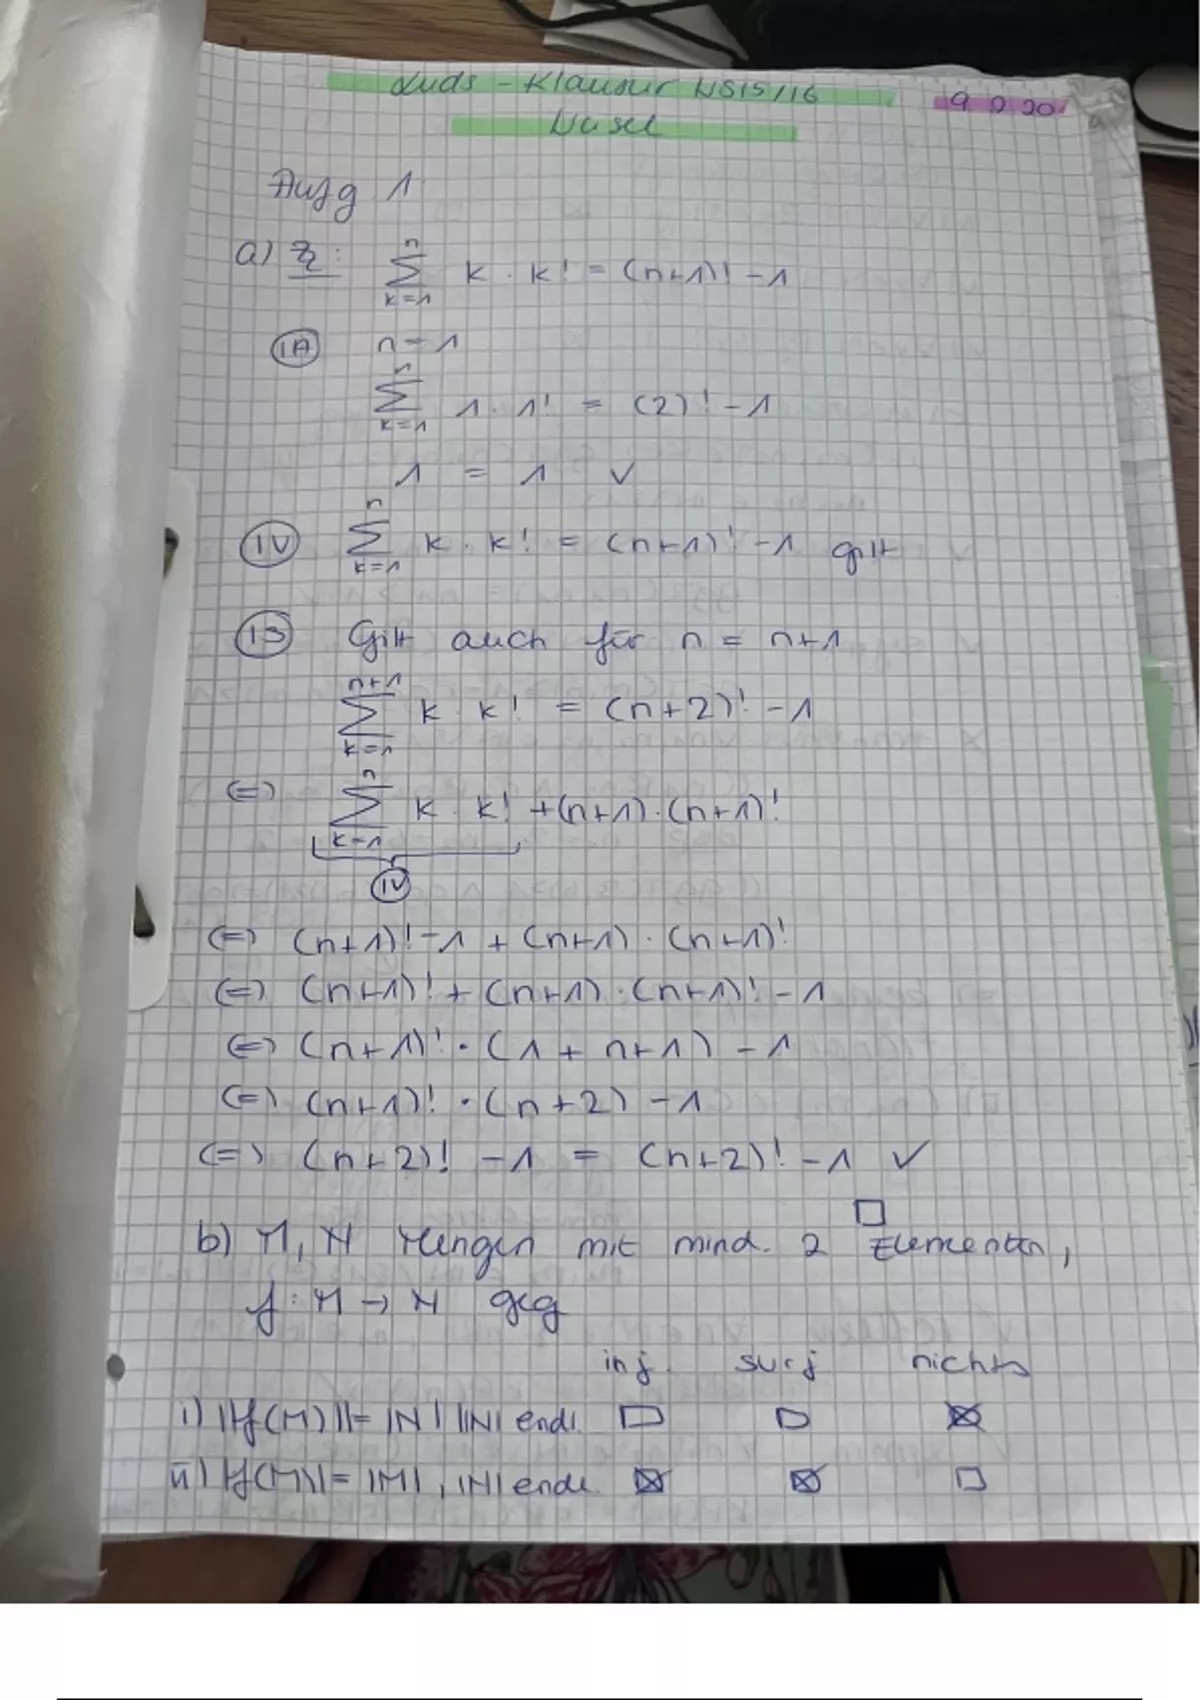 LuDS - Klausur WS15/16 9.2.20
Wasel
Aufg 1
a) Zz: ∑_{k=1}^{n} k · k! = (n+1)! - 1
(IA) n = 1
∑_{k=1}^{1} 1 · 1! = (2)! - 1
1 = 1 ✓
(IV) ∑_{k=1}^{n} k · k! = (n+1)! - 1 gilt
(IS) Gilt auch für n = n+1
∑_{k=1}^{n+1} k · k! = (n+2)! - 1
(=) ∑_{k=1}^{n} k · k! + (n+1) · (n+1)!
(IV)
(=) (n+1)! - 1 + (n+1) · (n+1)!
(=) (n+1)! + (n+1) · (n+1)! - 1
(=) (n+1)! · (1 + n+1) - 1
(=) (n+1)! · (n+2) - 1
(=) (n+2)! - 1 = (n+2)! - 1 ✓
□
b) M, N Mengen mit mind. 2 Elementen,
f : M → N geg
inj. surj nichts
i) |f(M)| = |N| |N| endl. □ □ ☒
ii) |f(M)| = |M|, |N| endl. ☒ ☒ □